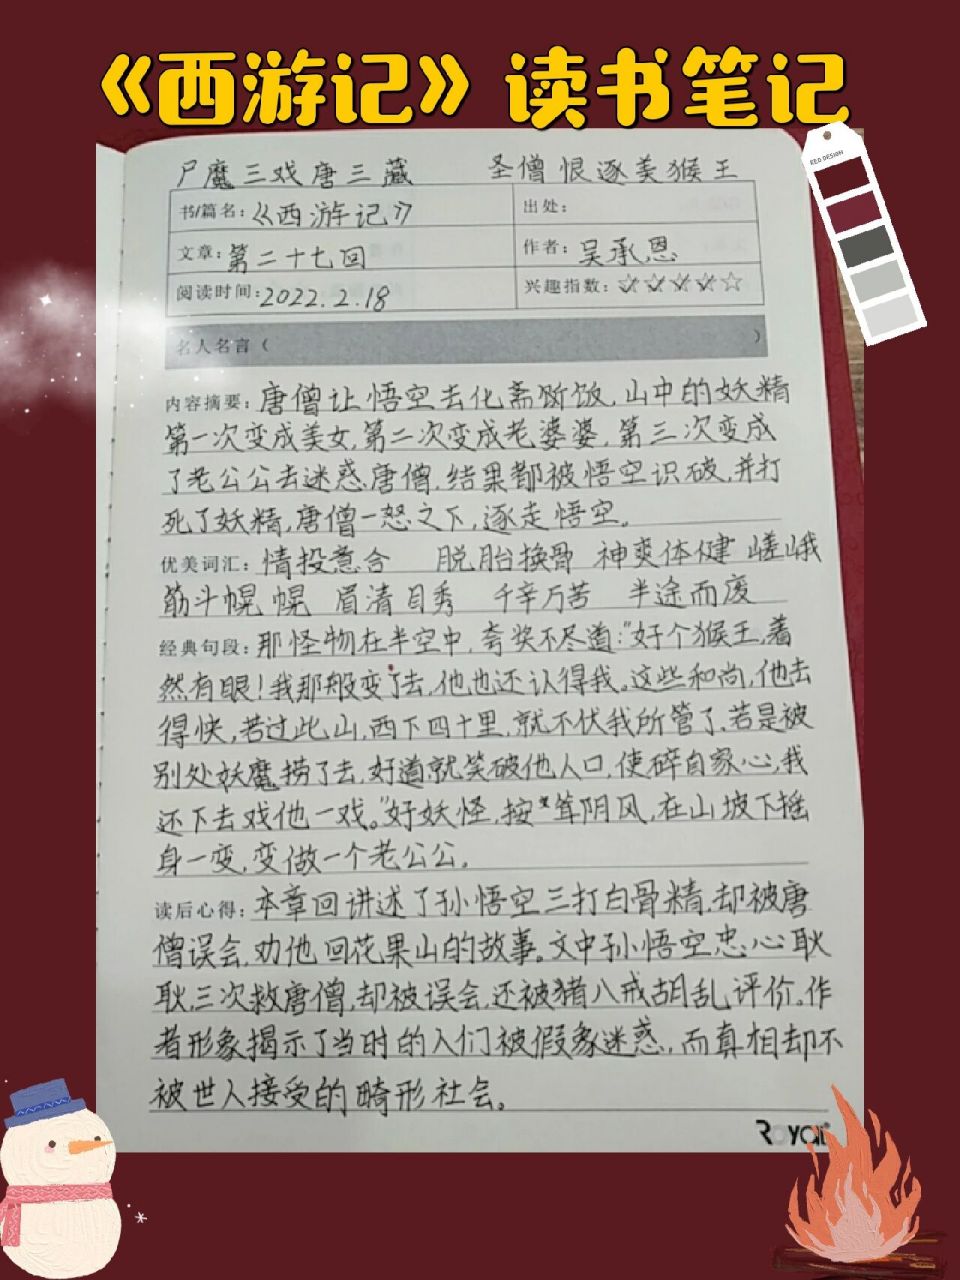 《西游记》读书笔记
RED DESIGN
尸魔三戏唐三藏 圣僧恨逐美猴王
书/篇名：《西游记》 出处：
文章：第二十七回 作者：吴承恩
阅读时间：2022.2.18 兴趣指数：☆☆☆☆☆
名人名言（ ）
内容摘要：唐僧让悟空去化斋饭，山中的妖精
第一次变成美女，第二次变成老婆婆，第三次变成
了老公公去迷惑唐僧，结果都被悟空识破，并打
死了妖精，唐僧一怒之下，逐走悟空。
优美词汇：情投意合 脱胎换骨 神爽体健 嵯峨
筋斗幌幌 眉清目秀 千辛万苦 半途而废
经典句段：那怪物在半空中，夸奖不尽道：“好个猴王，着
然有眼！我那般变了去，他也还认得我。这些和尚，他去
得快，若过此山，西下四十里，就不伏我所管了。若是被
别处妖魔捞了去，好道就笑破他人口，使碎自家心，我
还下去戏他一戏。”好妖怪，按耸阴风，在山坡下摇
身一变，变做一个老公公。
读后心得：本章回讲述了孙悟空三打白骨精，却被唐
僧误会，劝他回花果山的故事。文中孙悟空忠心耿
耿，三次救唐僧，却被误会，还被猪八戒胡乱评价。作
者形象揭示了当时的人们被假象迷惑，而真相却不
被世人接受的畸形社会。
Royal